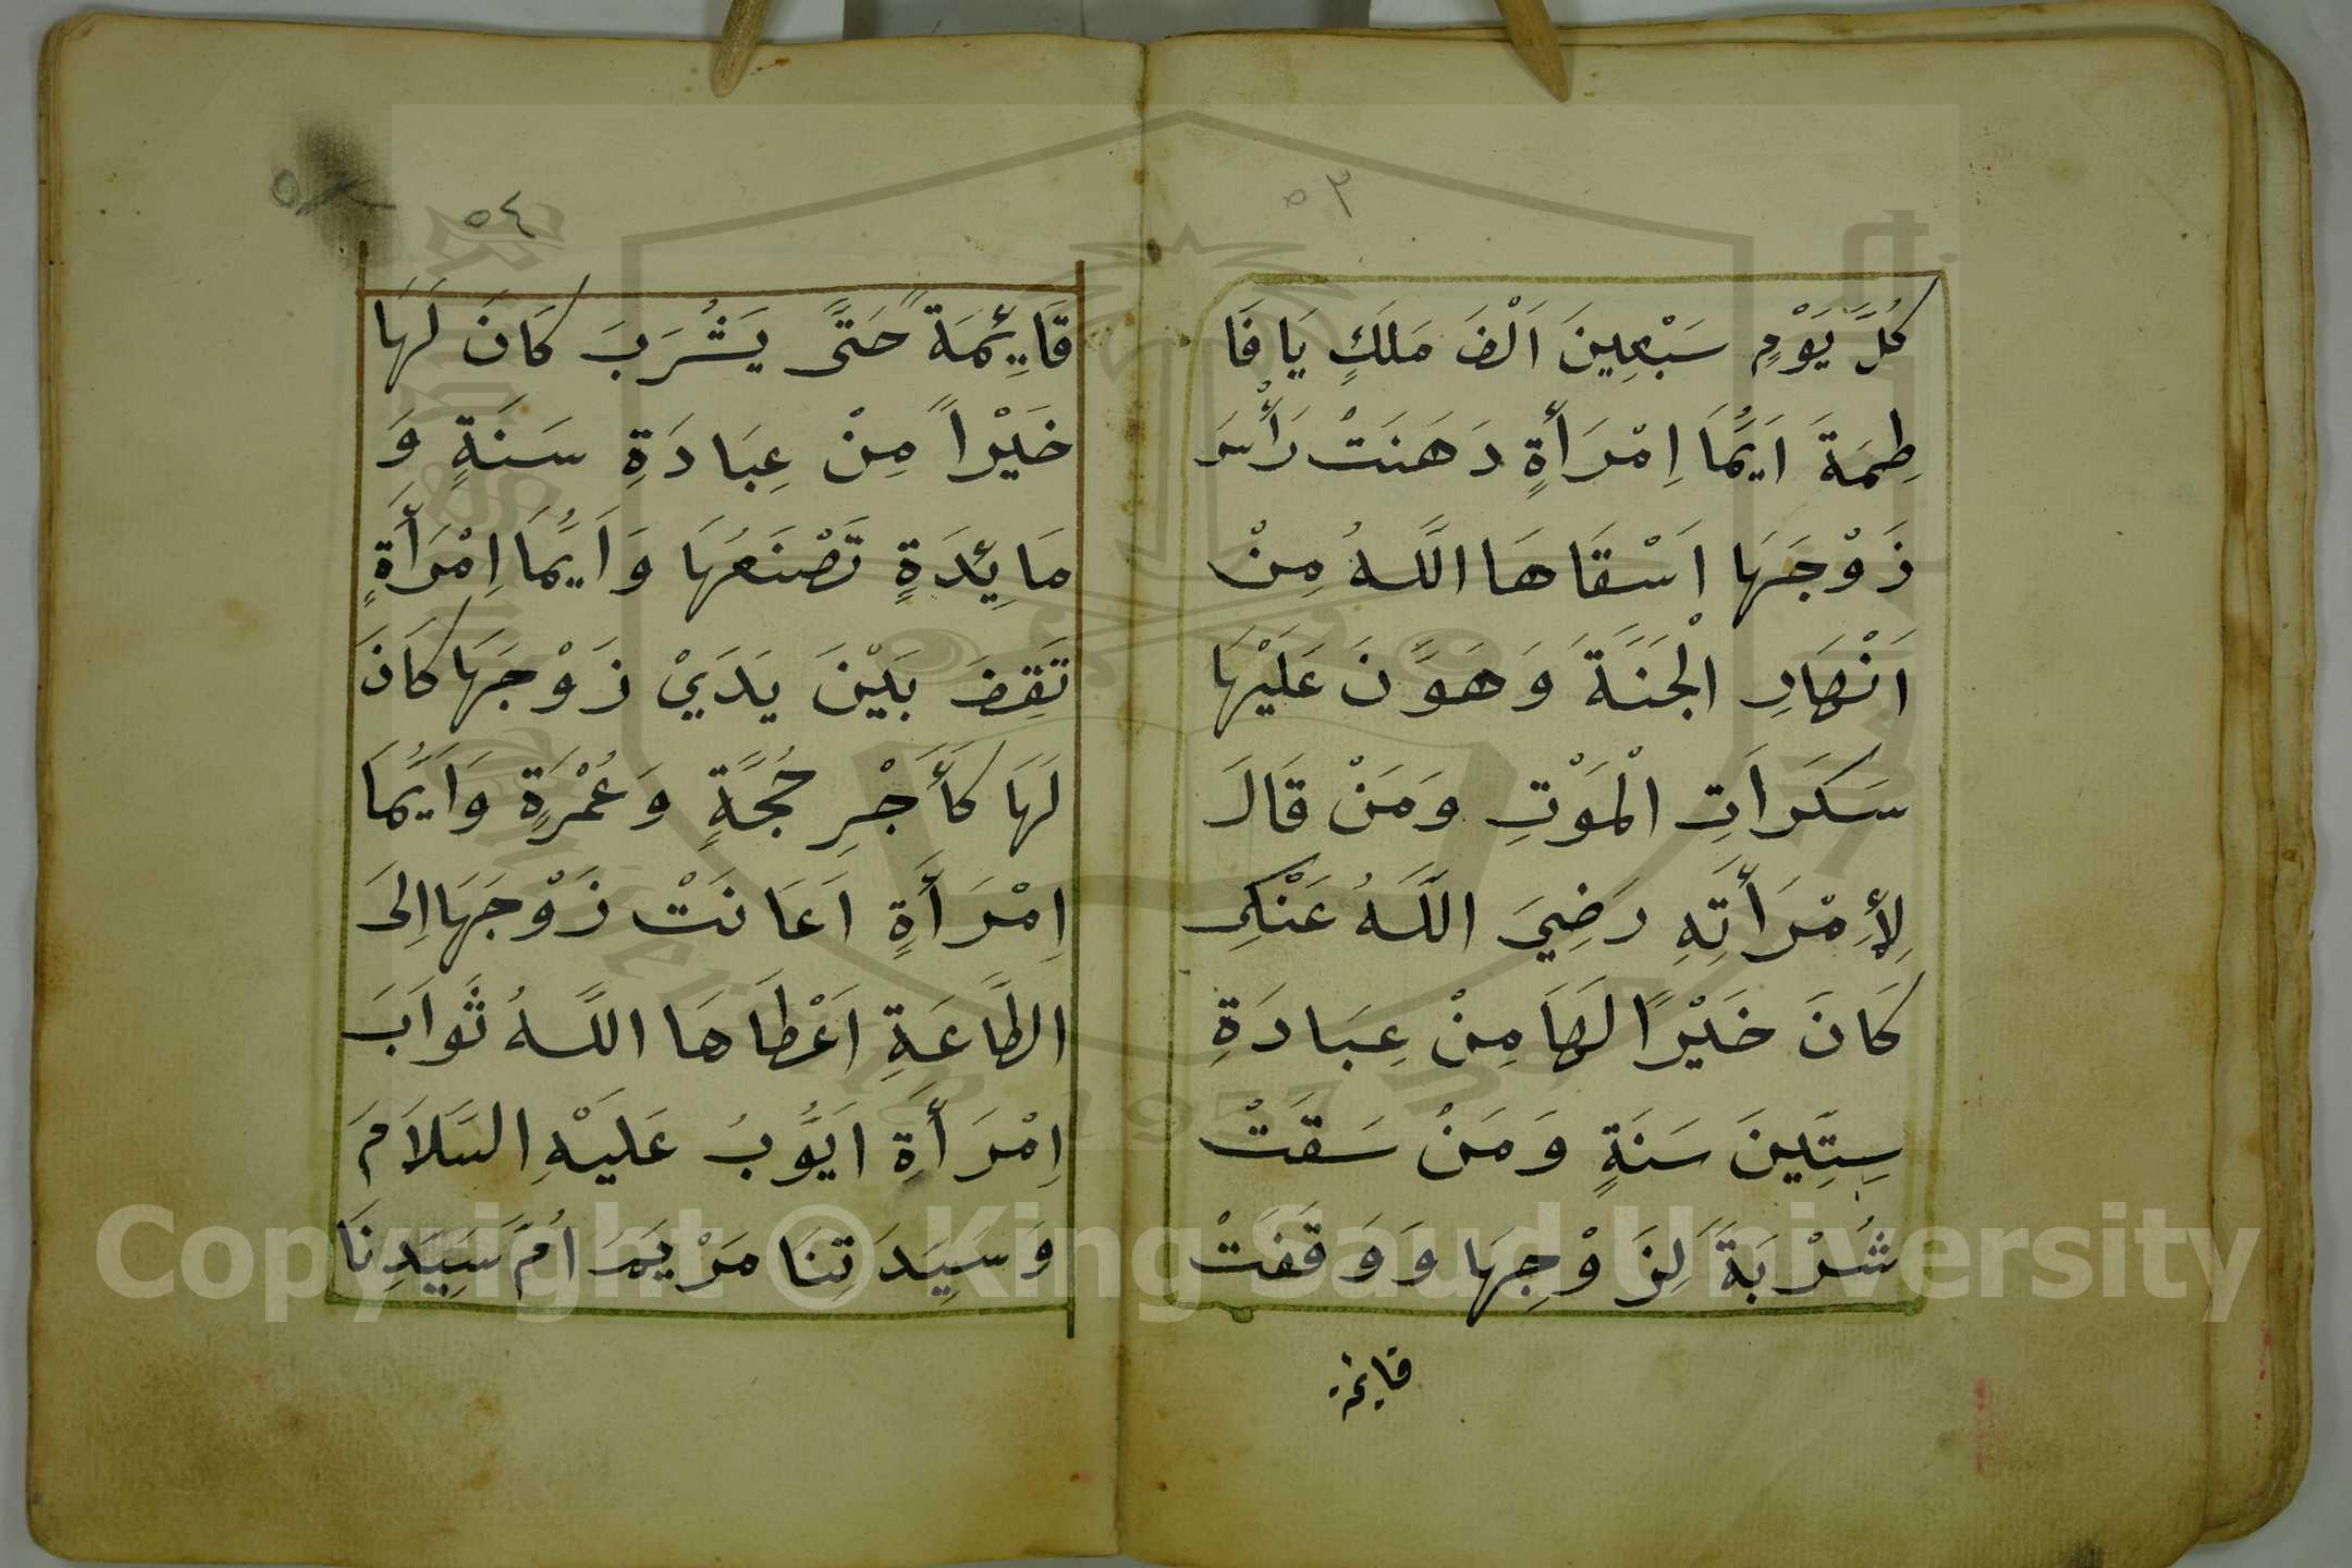 ٥٣
كُلَّ يَوْمٍ سَبْعِينَ اَلْفَ مَلَكٍ يَا فَا
طِمَةَ اَيُّمَا اِمْرَأَةٍ دَهَنَتْ رَأْسَ
زَوْجَهَا اَسْقَاهَا اللَّهُ مِنْ
اَنْهَارِ الْجَنَّةَ وَهَوَّنَ عَلَيْهَا
سَكَرَاتِ الْمَوْتِ وَمَنْ قَالَ
لِأِمْرَأَتِهِ رَضِيَ اللَّهُ عَنْكِ
كَانَ خَيْرًا لَهَا مِنْ عِبَادَةِ
سِتِّينَ سَنَةٍ وَمَنْ سَقَتْ
شُرْبَةً لِزَوْجِهَا وَوَقَفَتْ
قايمة
٥٤
قَايِئمَةً حَتَّى يَشْرَبَ كَانَ لَهَا
خَيْراً مِنْ عِبَادَةِ سَنَةٍ وَ
مَايِئدَةٍ تَصْنَعُهَا وَاَيُّمَا اِمْرَأَةٍ
تَقِفَ بَيْنَ يَدَيْ زَوْجَهَا كَانَ
لَهَا كَأَجْرِ حُجَّةٍ وَعُمْرَةٍ وَاَيُّمَا
اِمْرَأَةٍ اَعَانَتْ زَوْجَهَا اِلَى
الطَّاعَةِ اَعْطَاهَا اللَّهُ ثَوَابَ
اِمْرَأَةِ اَيُّوبُ عَلَيْهِ السَّلَامَ
وَسَيِّدَتِنَا مَرْيَمَ اُمَّ سَيِّدِنَا
Copyright © King Saud University
1957